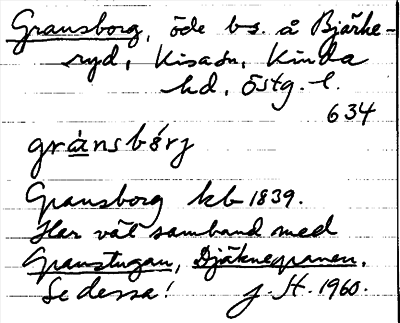 Gransborg, öde bs. å Bjärke-
ryd, Kisasn, Kinda
hd, Östg. l.
634
grànsbórj
Gransborg kb 1839.
Har väl samband med
Granstugan, Djäknegranen.
Se dessa! J. H. 1960.